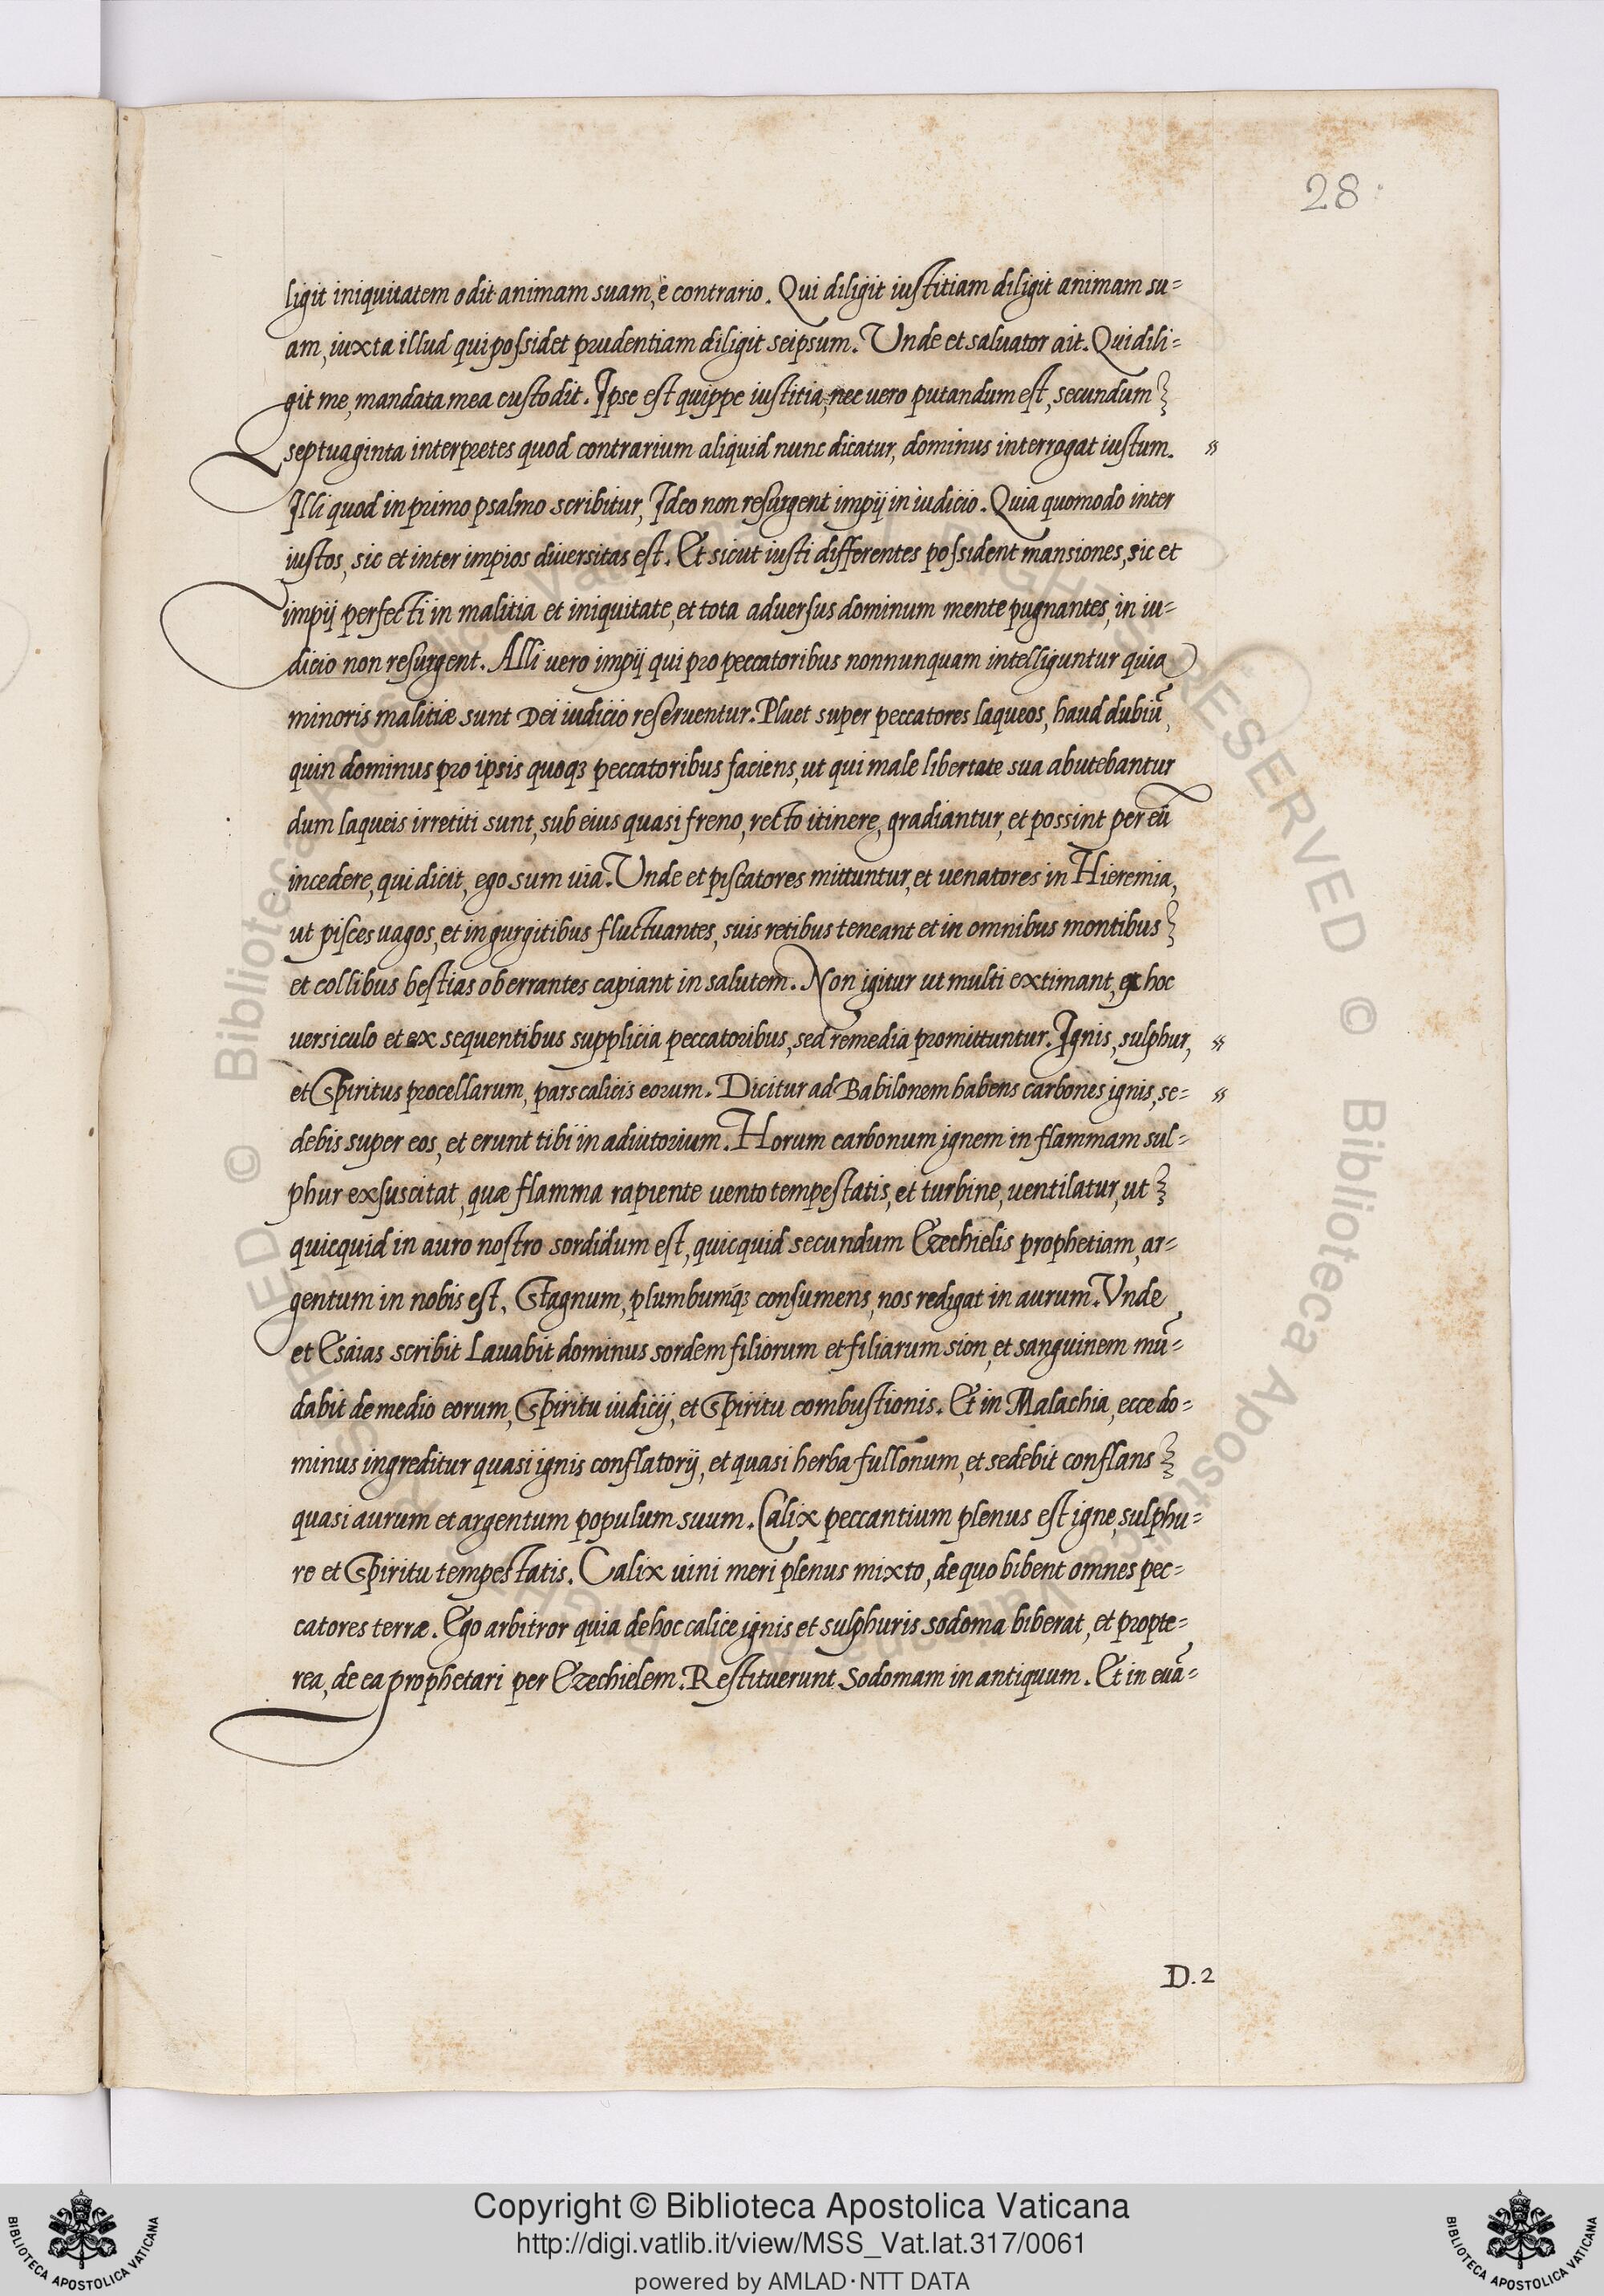 28
ligit iniquitatem odit animam suam, è contrario. Qui diligit iustitiam diligit animam su=
am, iuxta illud qui possidet prudentiam diligit seipsum. Unde et saluator ait. Qui dili=
git me, mandata mea custodit. Ipse est quippe iustitia, nec vero putandum est, secundum
septuaginta interpretes quod contrarium aliquid nunc dicatur, dominus interrogat iustum. "
Illi quod in primo psalmo scribitur, Ideo non resurgent impij in iudicio. Quia quomodo inter
iustos, sic et inter impios diversitas est. Et sicut iusti differentes possident mansiones, sic et
impij perfecti in malitia et iniquitate, et tota adversus dominum mente pugnantes, in iu=
dicio non resurgent. Alli vero impij qui pro peccatoribus nonnunquam intelliguntur quia
minoris malitiæ sunt Dei iudicio reserventur. Pluet super peccatores laqueos, haud dubiū,
quin dominus pro ipsis quoqꝫ peccatoribus faciens, ut qui male libertate sua abutebantur
dum laqueis irretiti sunt, sub eius quasi freno, recto itinere, gradiantur, et possint per eū
incedere, qui dicit, ego sum uia. Unde et piscatores mittuntur, et uenatores in Hieremia,
ut pisces uagos, et in gurgitibus fluctuantes, suis retibus teneant et in omnibus montibus
et collibus bestias oberrantes capiant in salutem. Non igitur ut multi extimant, ex hoc
versiculo et ex sequentibus supplicia peccatoribus, sed remedia promittuntur. Ignis, sulphur, "
et Spiritus procellarum, pars calicis eorum. Dicitur ad Babilonem habens carbones ignis, se= "
debis super eos, et erunt tibi in adiutorium. Horum carbonum ignem in flammam sul=
phur exsuscitat, quæ flamma rapiente uento tempestatis, et turbine, uentilatur, ut
quicquid in auro nostro sordidum est, quicquid secundum Ezechielis prophetiam, ar=
gentum in nobis est, Stagnum, plumbumqꝫ consumens, nos redigat in aurum. Unde
et Esaias scribit Lauabit dominus sordem filiorum et filiarum sion, et sanguinem mū=
dabit de medio eorum, Spiritu iudicij, et Spiritu combustionis. Et in Malachia, ecce do=
minus ingreditur quasi ignis conflatorij, et quasi herba fullonum, et sedebit conflans
quasi aurum et argentum populum suum. Calix peccantium plenus est igne, sulphu=
re et Spiritu tempestatis. Calix uini meri plenus mixto, de quo bibent omnes pec=
catores terræ. Ego arbitror quia de hoc calice ignis et sulphuris sodoma biberat, et propte=
rea, de ea prophetari per Ezechielem. Restituerunt Sodomam in antiquum. Et in euā=
D.2
Copyright © Biblioteca Apostolica Vaticana
http://digi.vatlib.it/view/MSS_Vat.lat.317/0061
powered by AMLAD·NTT DATA